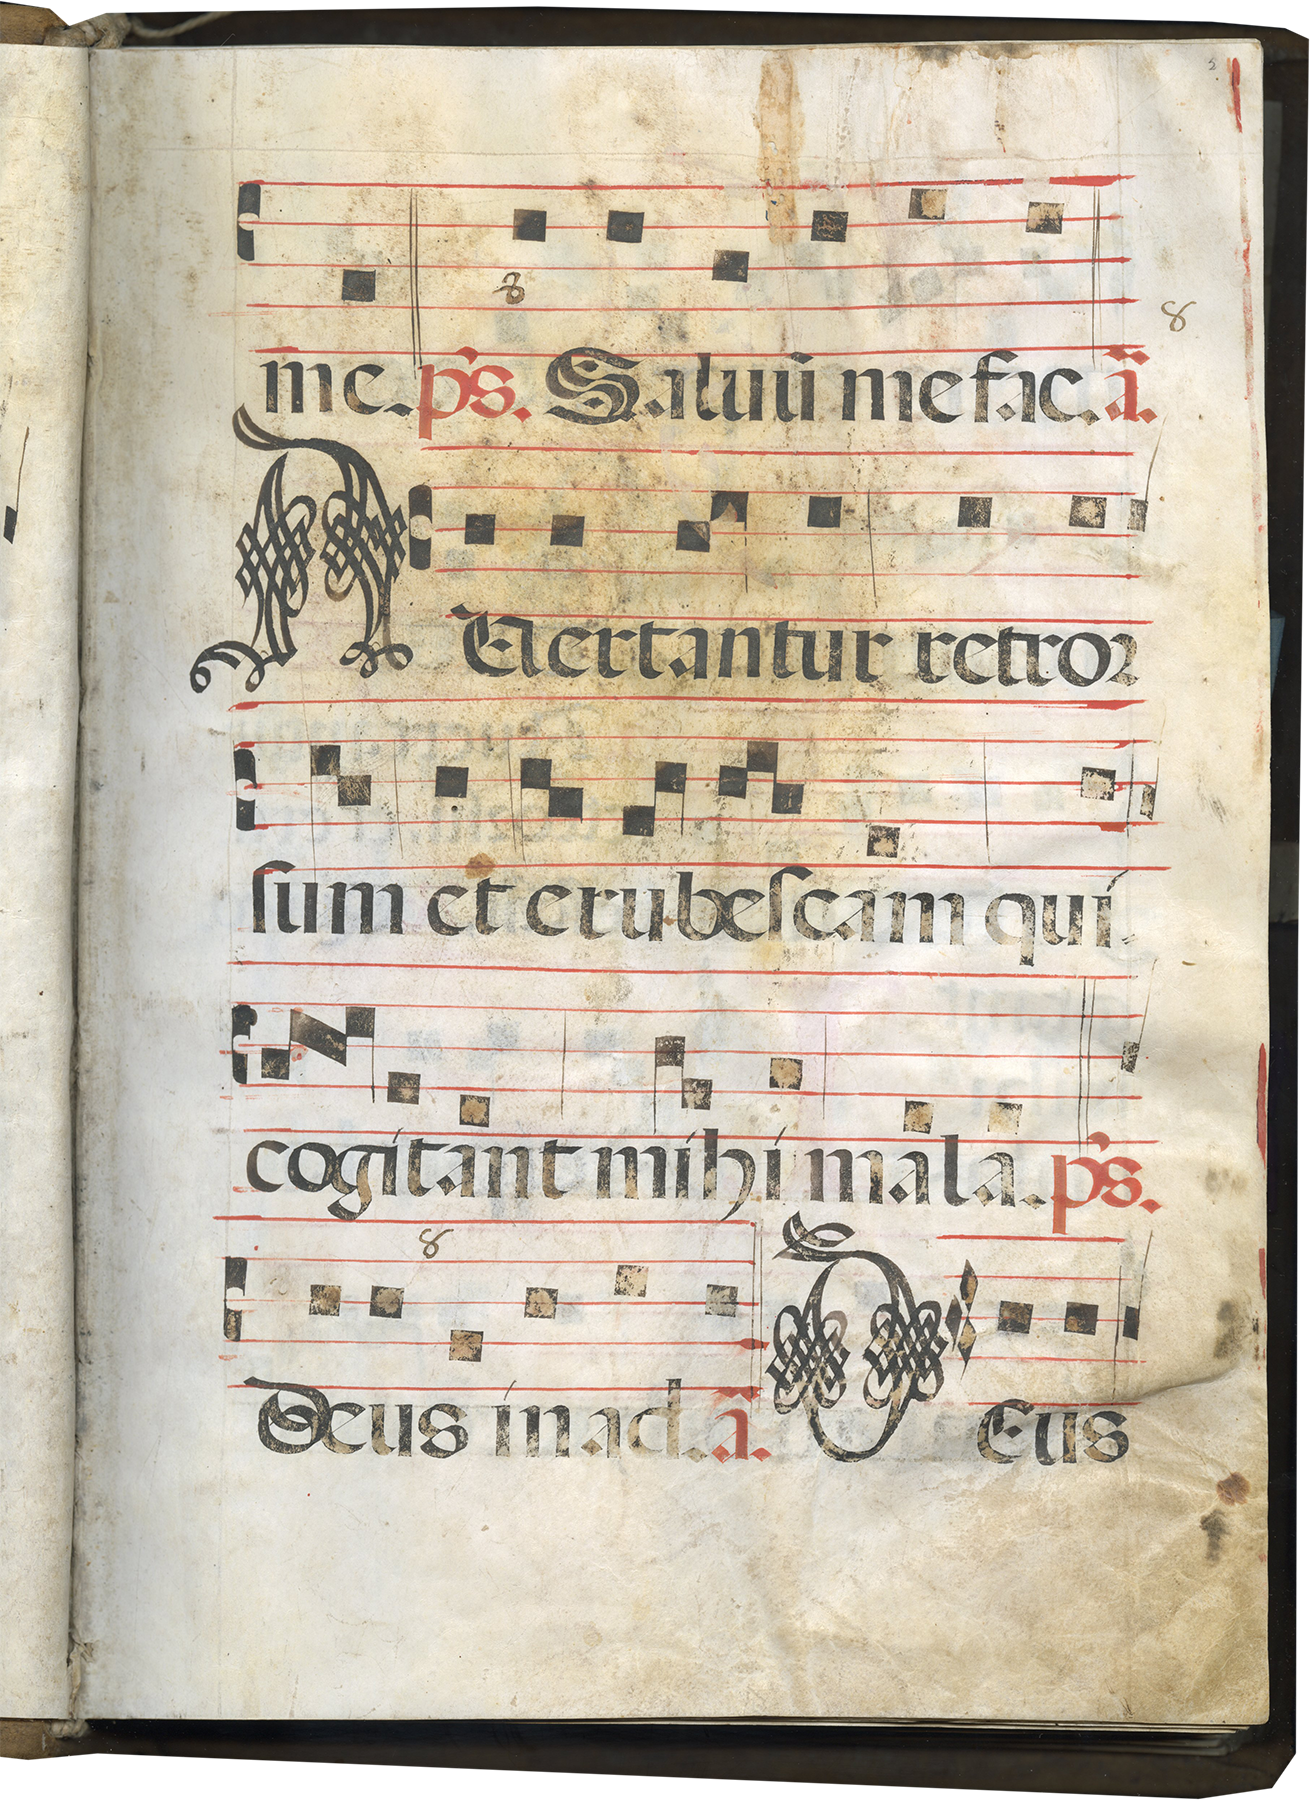 2
8
8
me. ps. Saluũ me fac. ã.
AUertantur retror
sum et erubescam qui
cogitant mihi mala. ps.
8
Deus in ad. ã. DEus